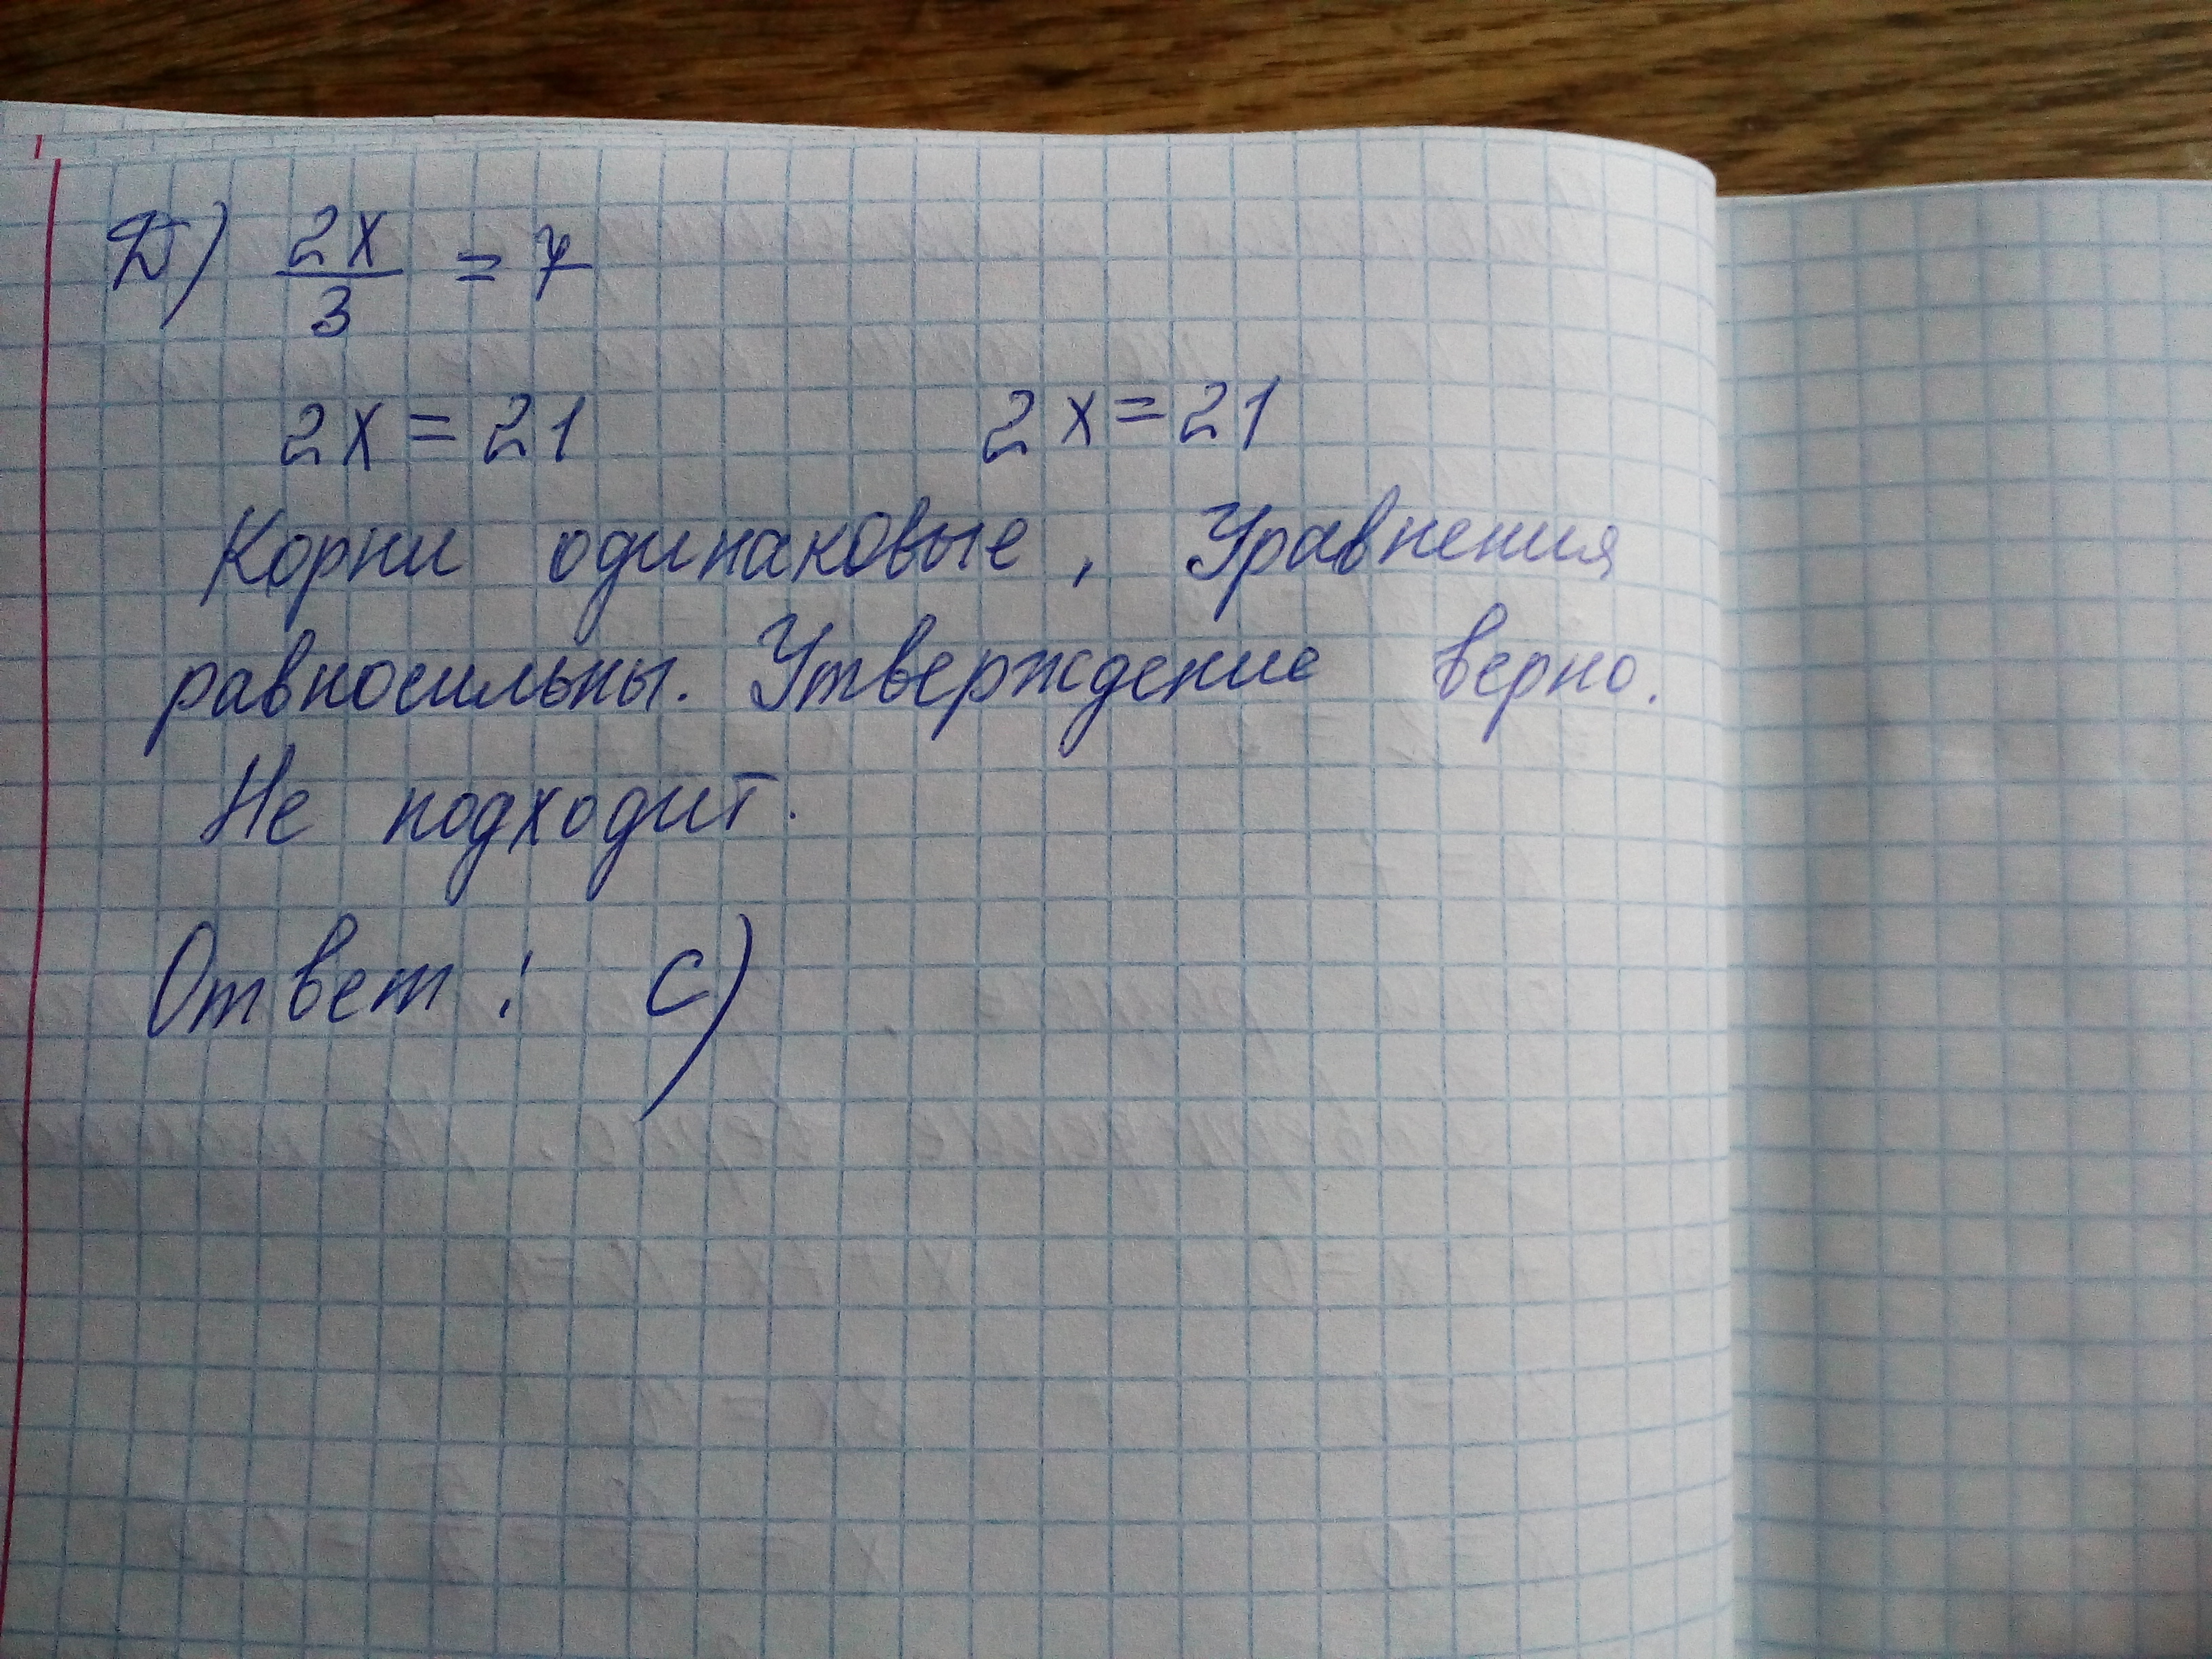 D) 2x/3 = 7
2x = 21 2x = 21
Корни одинаковые, Уравнения
равносильны. Утверждение верно.
Не подходит.
Ответ: C)